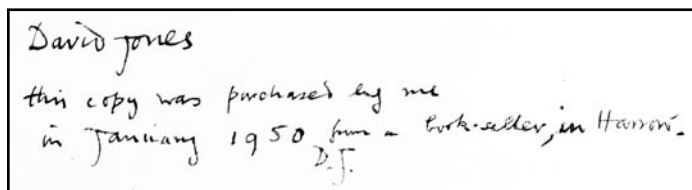 David Jones
this copy was purchased by me
in January 1950 from a book-seller, in Harrow.
D.J.